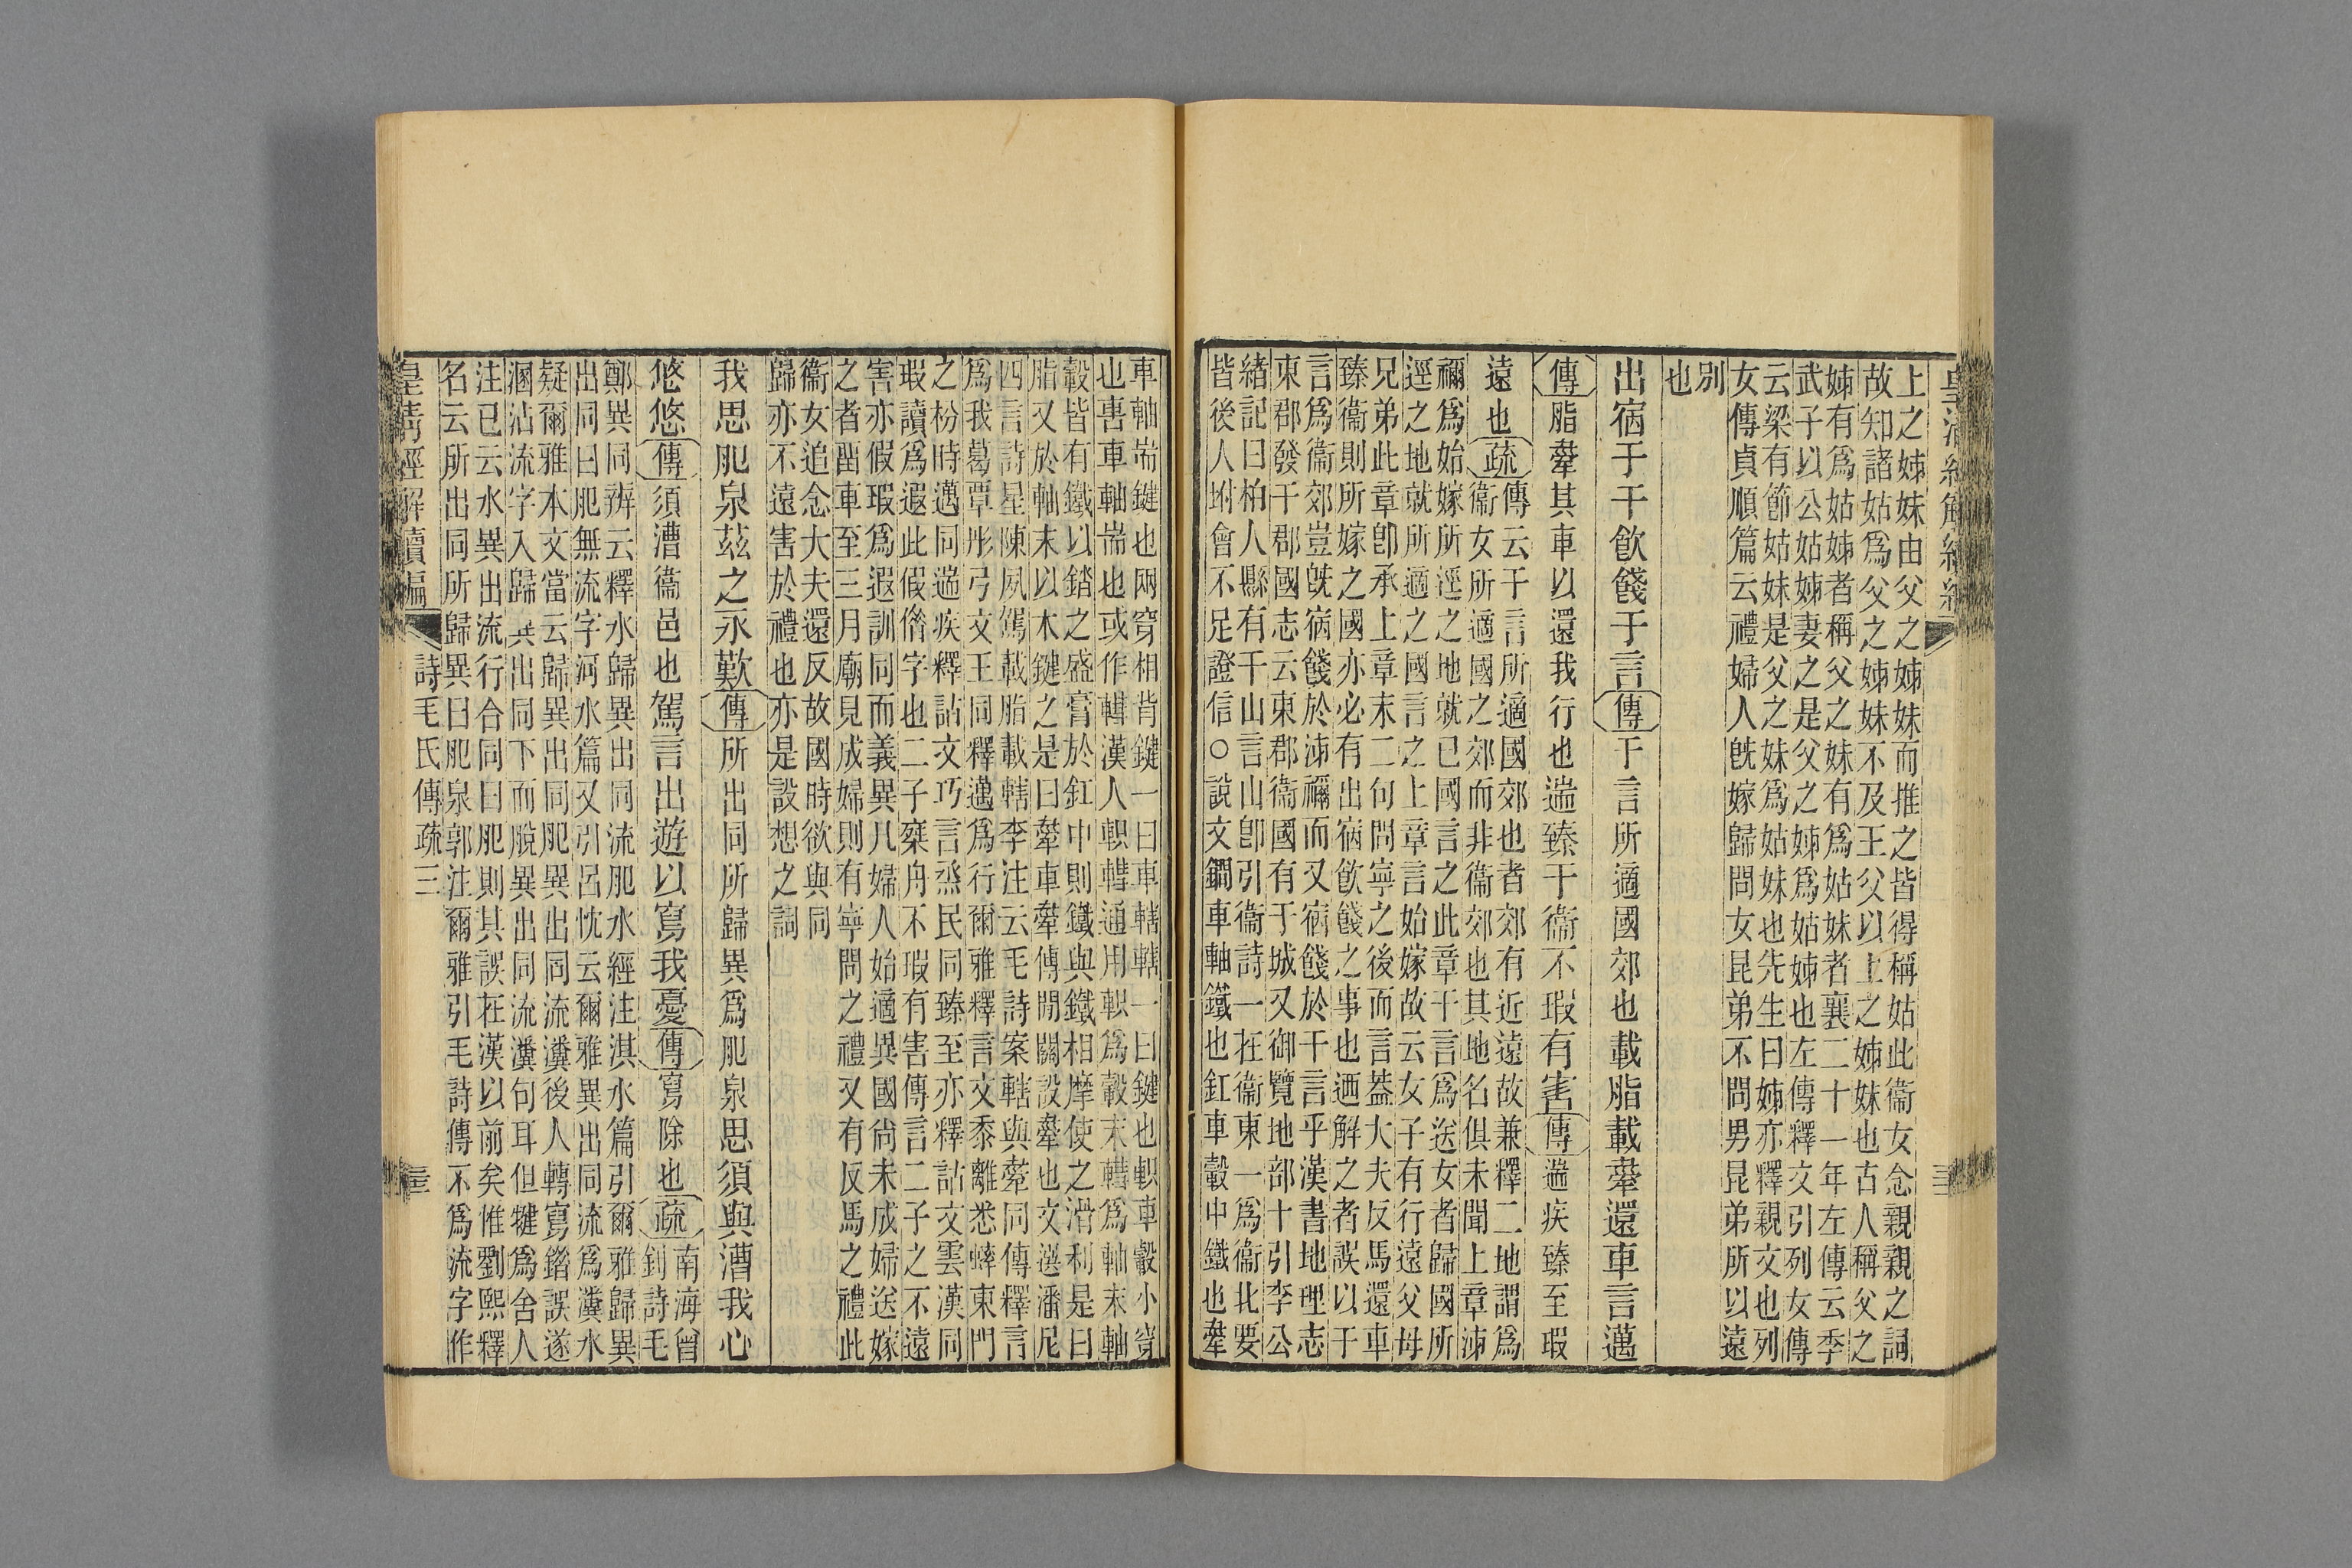 上之姊妹由父之姊妹而推之皆得稱姑此衞女念親親之詞
故知諸姑爲父之姊妹不及王父以上之姊妹也古人稱父之
姊有爲姑姊者稱父之妹有爲姑妹者襄二十一年左傳云季
武子以公姑姊妻之是父之姊爲姑姊也左傳釋文引列女傳
云梁有節姑妹是父之妹爲姑妹也先生曰姊亦釋親文也列
女傳貞順篇云禮婦人旣嫁歸問女昆弟不問男昆弟所以遠
別
也
出宿于干飮餞于言傳干言所適國郊也載脂載舝還車言邁
傳脂舝其車以還我行也遄臻于衞不瑕有害傳遄疾臻至瑕
遠也疏
傳云干言所適國郊也者郊有近遠故兼釋二地謂爲
衞女所適國之郊而非衞郊也其地名俱未聞上章泲
禰爲始嫁所逕之地就已國言之此章干言爲送女者歸國所
逕之地就所適之國言之上章言始嫁故云女子有行遠父母
兄弟此章卽承上章末二句問寧之後而言葢大夫反馬還車
臻衞則所嫁之國亦必有出宿飮餞之事也迺解之者誤以干
言爲衞郊豈旣宿餞於泲禰而又宿餞於干言乎漢書地理志
東郡發干郡國志云東郡衞國有干城又御覽地部十引李公
緒記曰柏人縣有干山言山卽引衞詩一在衞東一爲衞北要
皆後人坿會不足證信○說文鐧車軸鐵也釭車轂中鐵也舝
車軸耑鍵也兩穿相背鍵一曰車轄轄一曰鍵也軹車轂小穿
也軎車軸耑也或作轊漢人軹轊通用軹爲轂末轊爲軸末軸
轂皆有鐵以錔之盛膏於釭中則鐵與鐵相摩使之滑利是曰
脂又於軸末以木鍵之是曰舝車舝傳閒關設舝也文選潘尼
四言詩星陳夙駕載脂載轄李注云毛詩案轄與舝同傳釋言
爲我葛覃彤弓文王同釋邁爲行爾雅釋言文黍離悉蟀東門
之枌時邁同遄疾釋詁文巧言烝民同臻至亦釋詁文雲漢同
瑕讀爲遐此假借字也二子椉舟不瑕有害傳言二子之不遠
害亦假瑕爲遐訓同而義異凡婦人始適異國尙未成婦送嫁
之者畱車至三月廟見成婦則有寧問之禮又有反馬之禮此
衞女追念大夫還反故國時欲與同
歸亦不遠害於禮也亦是設想之詞
我思肥泉茲之永歎傳所出同所歸異爲肥泉思須與漕我心
悠悠傳須漕衞邑也駕言出遊以寫我憂傳寫除也疏
南海曾
釗詩毛
鄭異同辨云釋水歸異出同流肥水經注淇水篇引爾雅歸異
出同曰肥無流字河水篇又引呂忱云爾雅異出同流爲瀵水
疑爾雅本文當云歸異出同肥異出同流瀵後人轉寫錯誤遂
溷沾流字入歸異出同下而脫異出同流瀵句耳但犍爲舍人
注已云水異出流行合同曰肥則其誤在漢以前矣惟劉熙釋
名云所出同所歸異曰肥泉郭注爾雅引毛詩傳不爲流字作
皇清經解續編 詩毛氏傳疏三